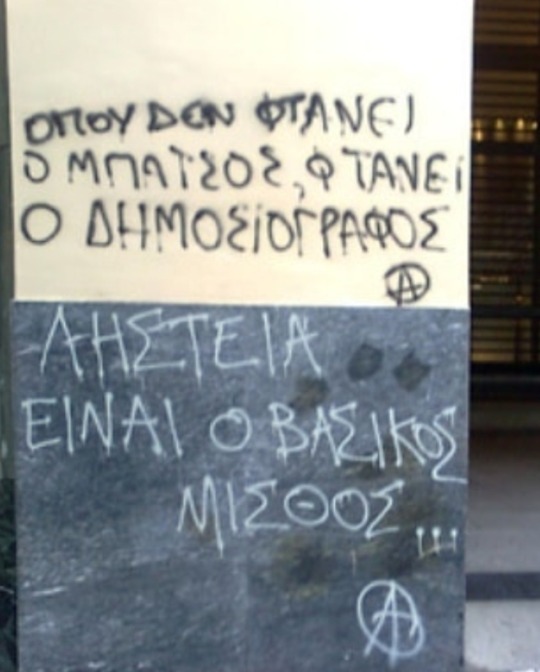 ΟΠΟΥ ΔΕΝ ΦΤΑΝΕΙ
Ο ΜΠΑΤΣΟΣ, ΦΤΑΝΕΙ
Ο ΔΗΜΟΣΙΟΓΡΑΦΟΣ
Ⓐ
ΛΗΣΤΕΙΑ
ΕΙΝΑΙ Ο ΒΑΣΙΚΟΣ
ΜΙΣΘΟΣ...
Ⓐ